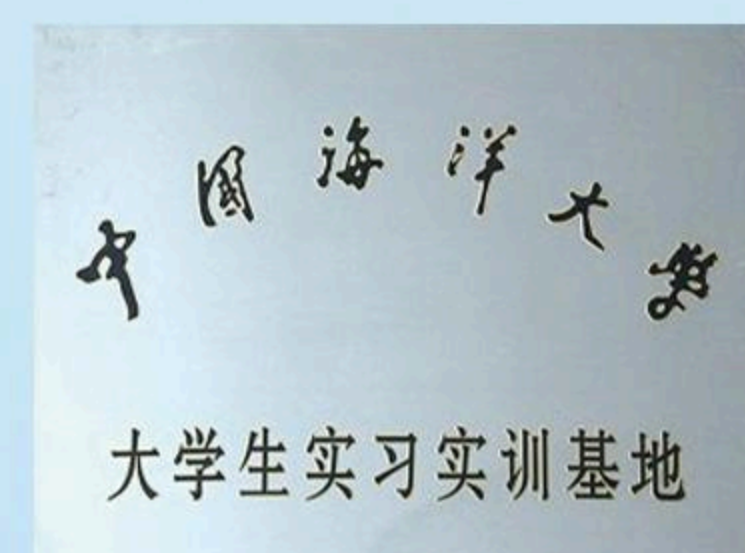 中国海洋大学
大学生实习实训基地